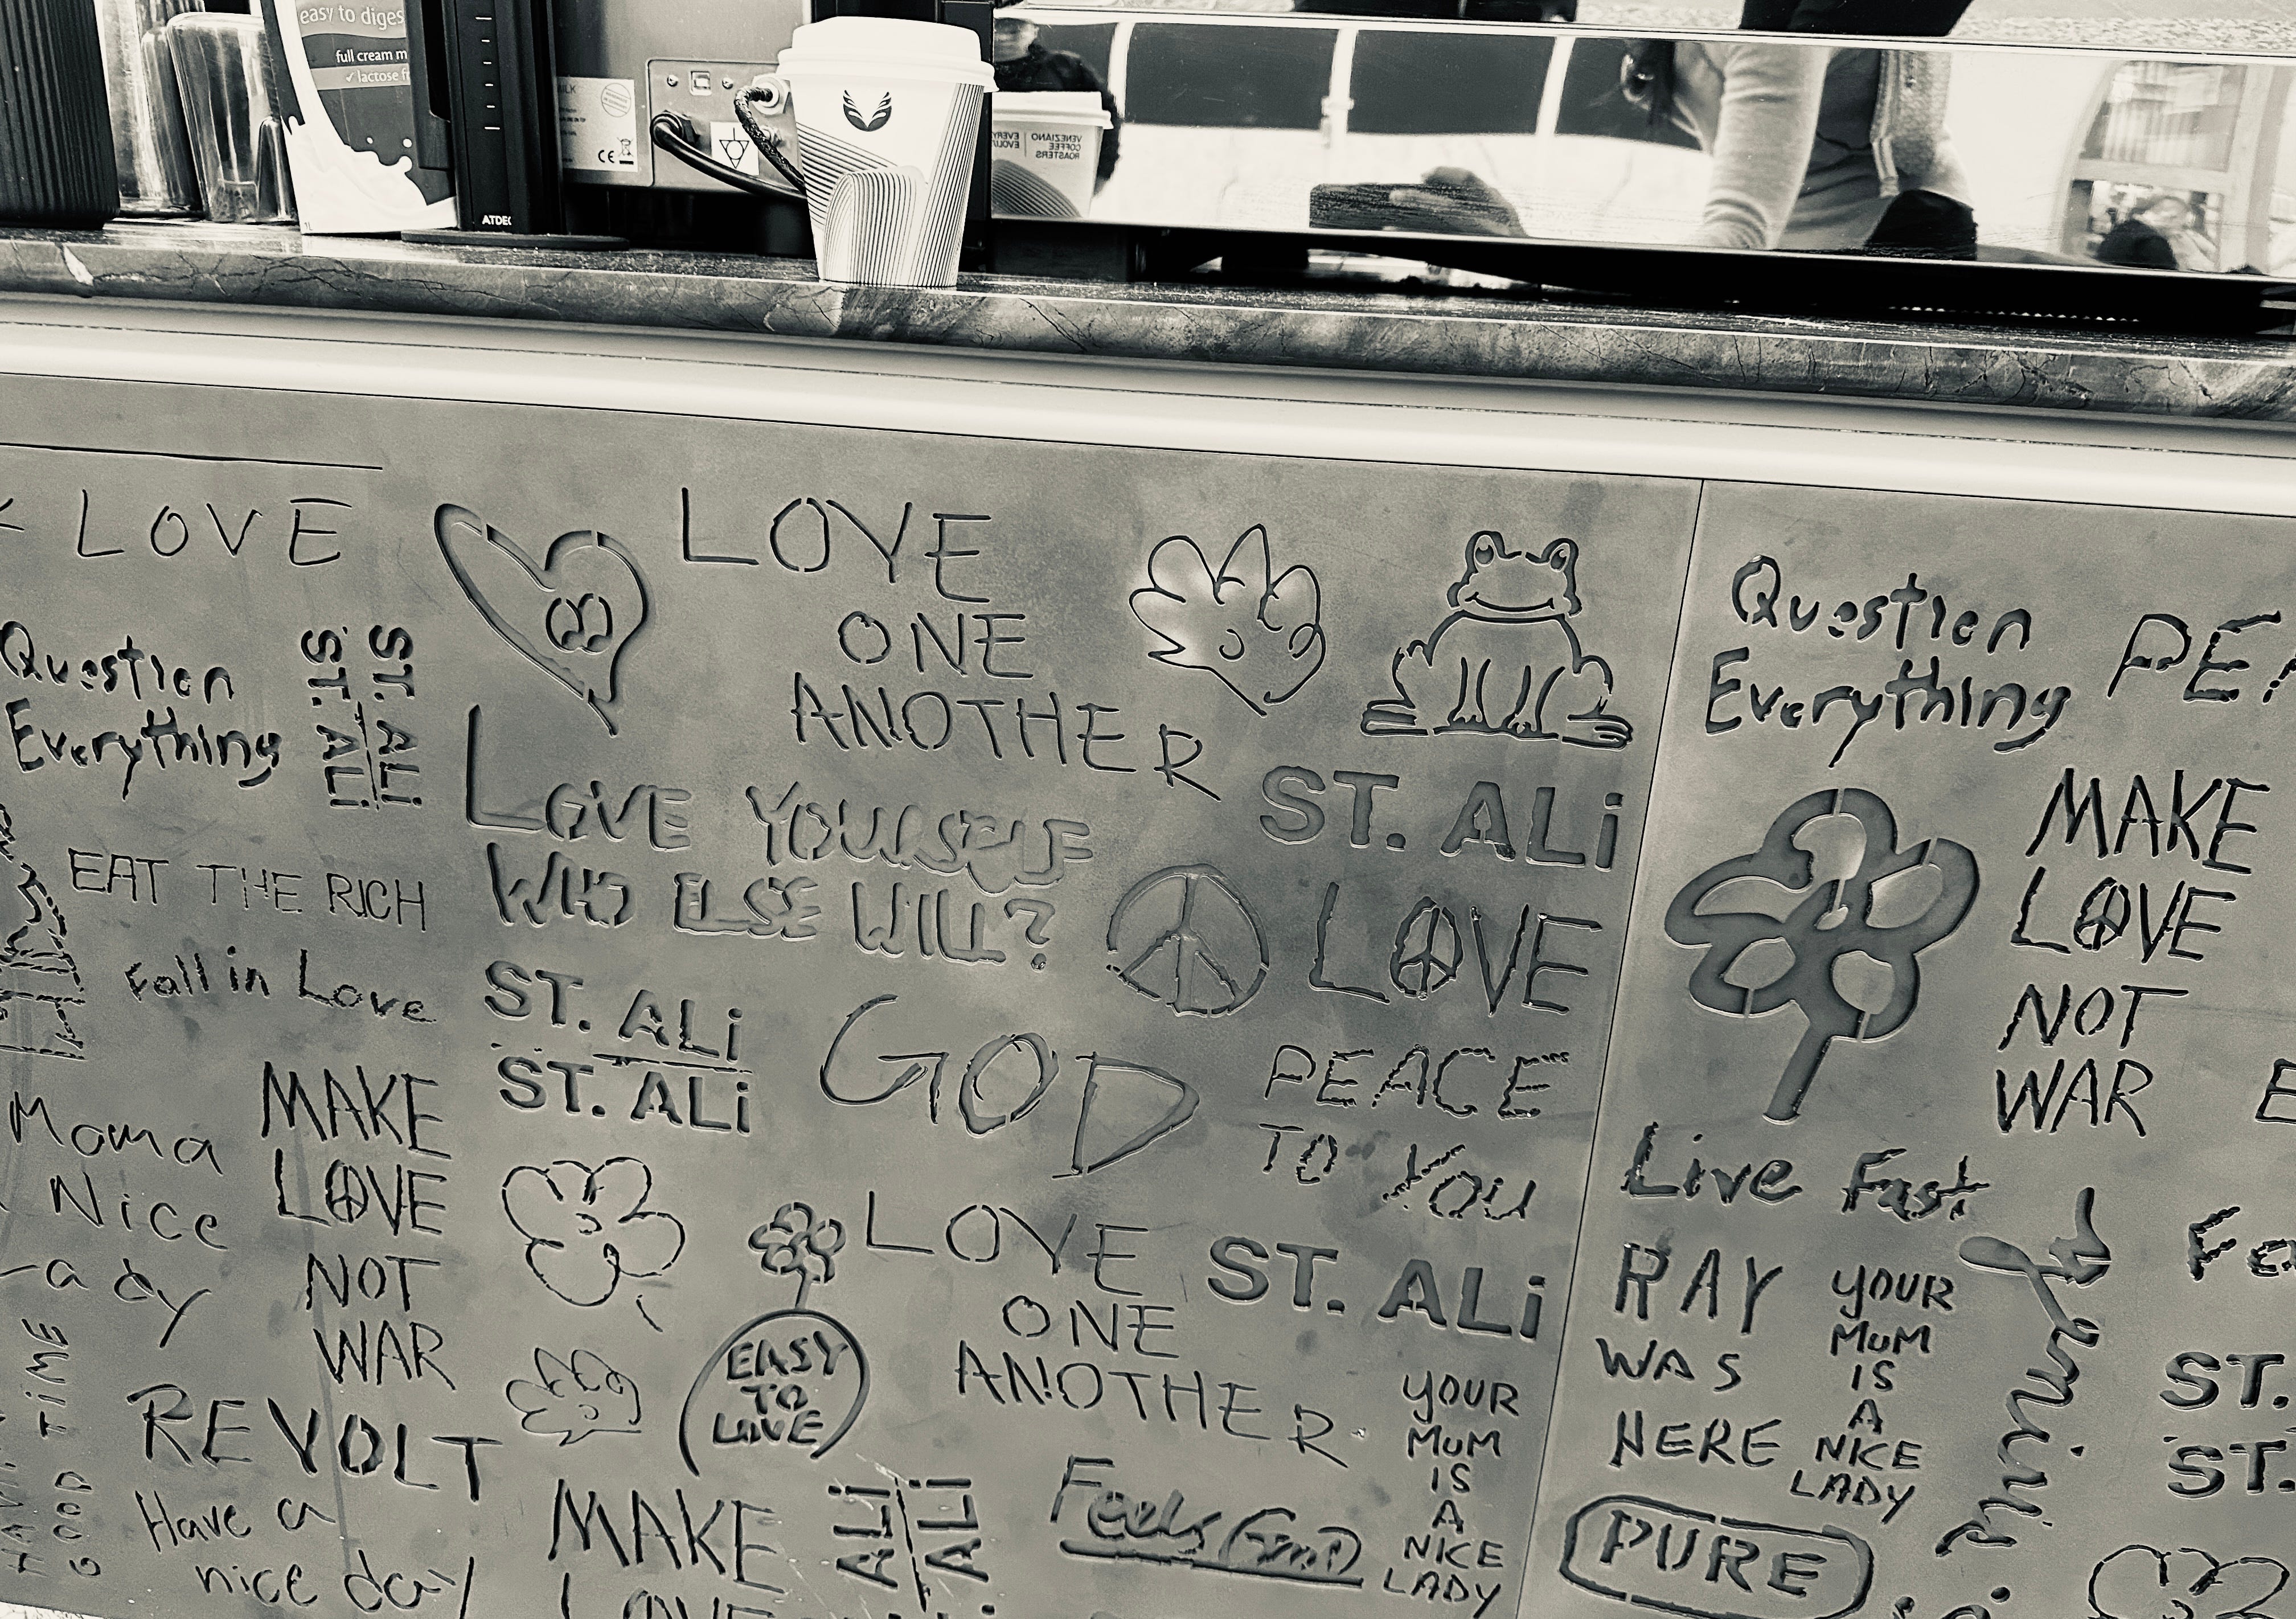 easy to
full cream
lactose
CE
VENEZIANO
COFFEE
ROASTERS
LOVE
Question
Everything
ST. ALi
ST. ALi
EAT THE RICH
Fall in Love
Moma
Nice
MAKE
LOVE
NOT
WAR
GOOD TiME
REVOLT
Have a
nice day
LOVE
ONE
ANOTHER
LOVE YOURSELF
WHO ELSE WILL?
ST. ALi
LOVE
ST. ALi
ST. ALi
GOD
PEACE
TO YOU
LOVE
ONE
ANOTHER
ST. ALi
EASY
TO
LOVE
MAKE
LOVE
ALi
ALi
Feels Good
YOUR
MUM
IS
A
NICE
LADY
Question
Everything
MAKE
LOVE
NOT
WAR
Live Fast
RAY
WAS
HERE
YOUR
MUM
IS
A
NICE
LADY
ST.
ST.
PURE